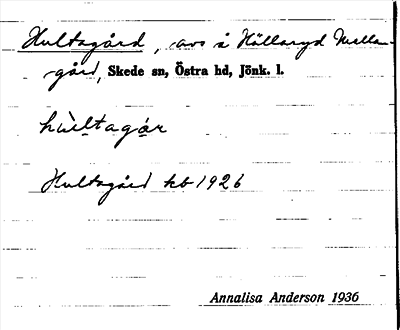 Hultagård, avs å Hällaryd Mellan-
gård, Skede sn, Östra hd, Jönk. l.
hùltagár
Hultagård kb 1926
Annalisa Anderson 1936